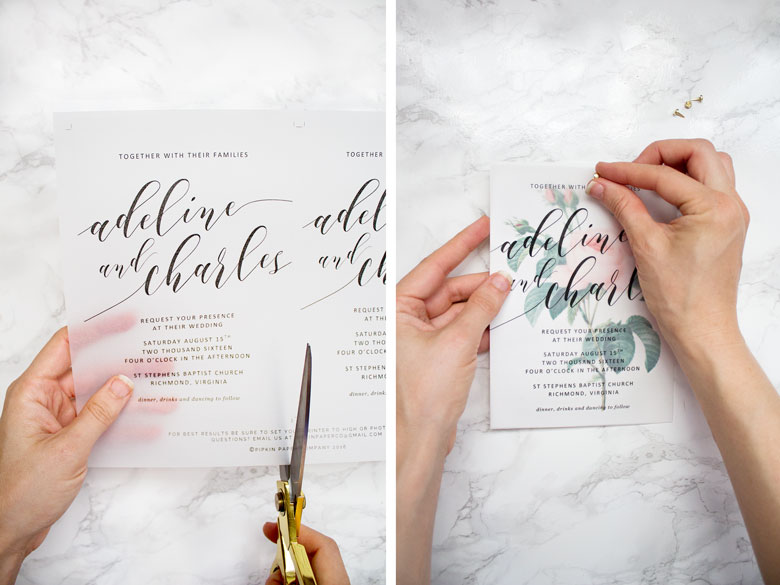 TOGETHER WITH THEIR FAMILIES
adeline
and charles
REQUEST YOUR PRESENCE
AT THEIR WEDDING
SATURDAY AUGUST 15TH
TWO THOUSAND SIXTEEN
FOUR O'CLOCK IN THE AFTERNOON
ST STEPHENS BAPTIST CHURCH
RICHMOND, VIRGINIA
dinner, drinks and dancing to follow
FOR BEST RESULTS BE SURE TO SET TO HIGH OR PHOT
QUESTIONS! EMAIL US AT @GMAIL.COM
©PIPKIN PAPER COMPANY 2016
TOGETHER WITH
adel
and ch
REQUEST
AT TH
SATURDAY
TWO THOU
FOUR O'CLOCK
ST STEPHENS
RICHMON
dinner, drinks
TOGETHER WITH
adeline
and charles
REQUEST YOUR PRESENCE
AT THEIR WEDDING
SATURDAY AUGUST 15TH
TWO THOUSAND SIXTEEN
FOUR O'CLOCK IN THE AFTERNOON
ST STEPHENS BAPTIST CHURCH
RICHMOND, VIRGINIA
dinner, drinks and dancing to follow